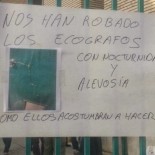 NOS HAN ROBADO
LOS ECOGRAFOS
CON NOCTURNIDAD
Y
ALEVOSÍA
COMO ELLOS ACOSTUMBRAN A HACER